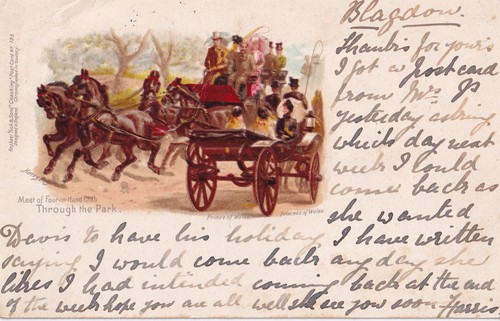 Blagdon.
Thanks for yours
I got a postcard
from Mrs P
yesterday asking
which day next
week I could
come back as
she wanted
Davis to have his holiday I have written
saying I would come back any day she
likes I had intended coming back at the end
of the week hope you are all well she see you soon Harris
Meet of Four-in-Hand Club
Through the Park.
Prince of Wales
Princess of Wales